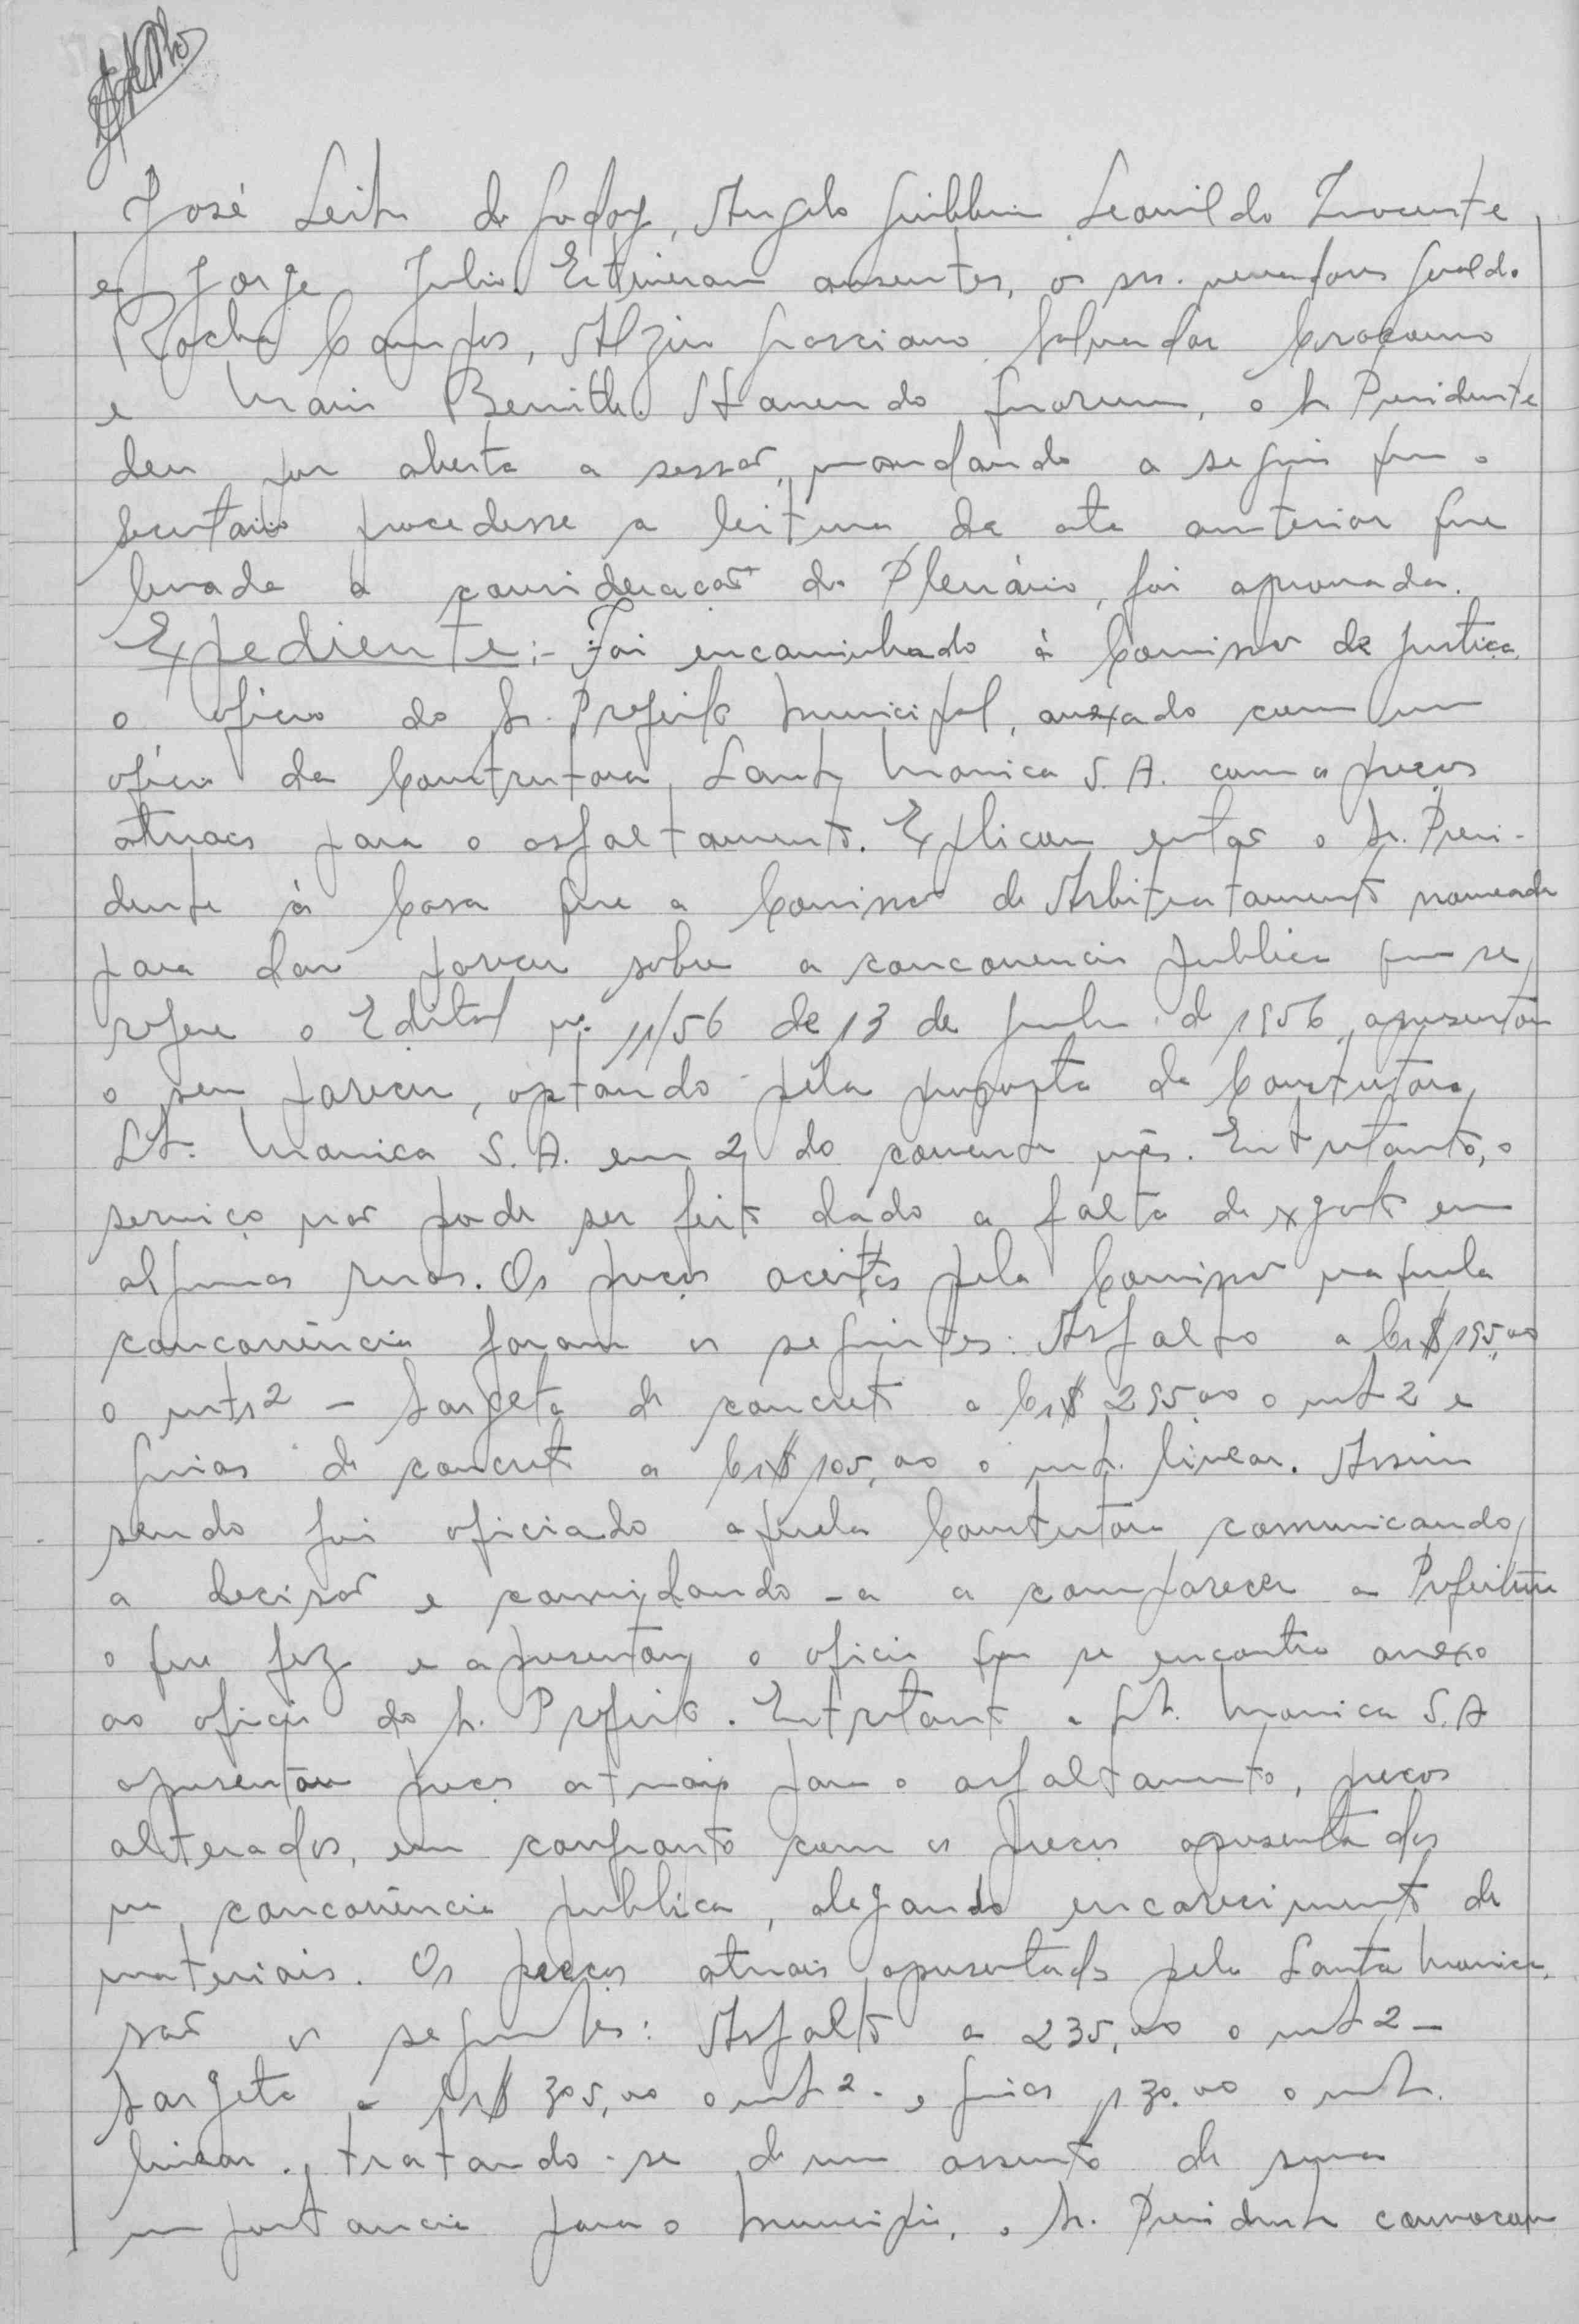 José Leite de Godoy, Angelo Guilherme Leonildo Inocente
e Jorge Julio. Estiveram ausentes, os srs. vereadores Geraldo
Rocha Campos, Alziro Graciano Salvador
e Mario Havendo quorum, o Sr Presidente
deu por aberta a sessão, mandando a seguir que o
Secretario procedesse a leitura da ata anterior que
levada a consideração do Plenário, foi aprovada.
Expediente:- Foi encaminhado à Comissão de Justiça
o oficio do Sr. Prefeito Municipal, anexado com um
oficio da Construtora Santa Monica S. A. com os preços
atuaes para o asfaltamento. Explicou então o Sr. Presi-
dente à Casa que a Comissão de Arbitratamento nomeada
para dar parecer sobre a concorrencia publica que se
refere o Edital nº 11/56 de 13 de Junho de 1956, apresentou
o seu parecer, optando pela proposta da Construtora
Sta. Monica S. A. em 2 do corrente mês. Entretanto, o
serviço não pode ser feito dado a falta de exgoto em
algumas ruas. Os preços aceitos pela Comissão naquela
concorrência foram os seguintes: Asfalto a Cr$ 195,00
o mts2 - Sargeta de concreto a Cr$ 295,00 o mt2 e
guias de concreto a Cr$ 105,00 o mt. linear. Assim
sendo foi oficiado aquela Construtora comunicando
a decisão e convidando-a a comparecer a Prefeitura
o que fez e apresentou o oficio que se encontra anexo
ao oficio do Sr. Prefeito. Entretanto a Sta. Monica S.A
apresentou preços atuais para o asfaltamento, preços
alterados, em confronto com os preços apresentados
na concorrência publica, alegando encarecimento de
materiais. Os preços atuais apresentados pela Santa Monica
são os seguintes: Asfalto a 235,00 o mt2 -
Sargeta a Cr$ 305,00 o mt2. e guias 130.00 o mt.
linear. tratando-se de um assunto de suma
importancia para o Municipio, o Sr. Presidente convocou